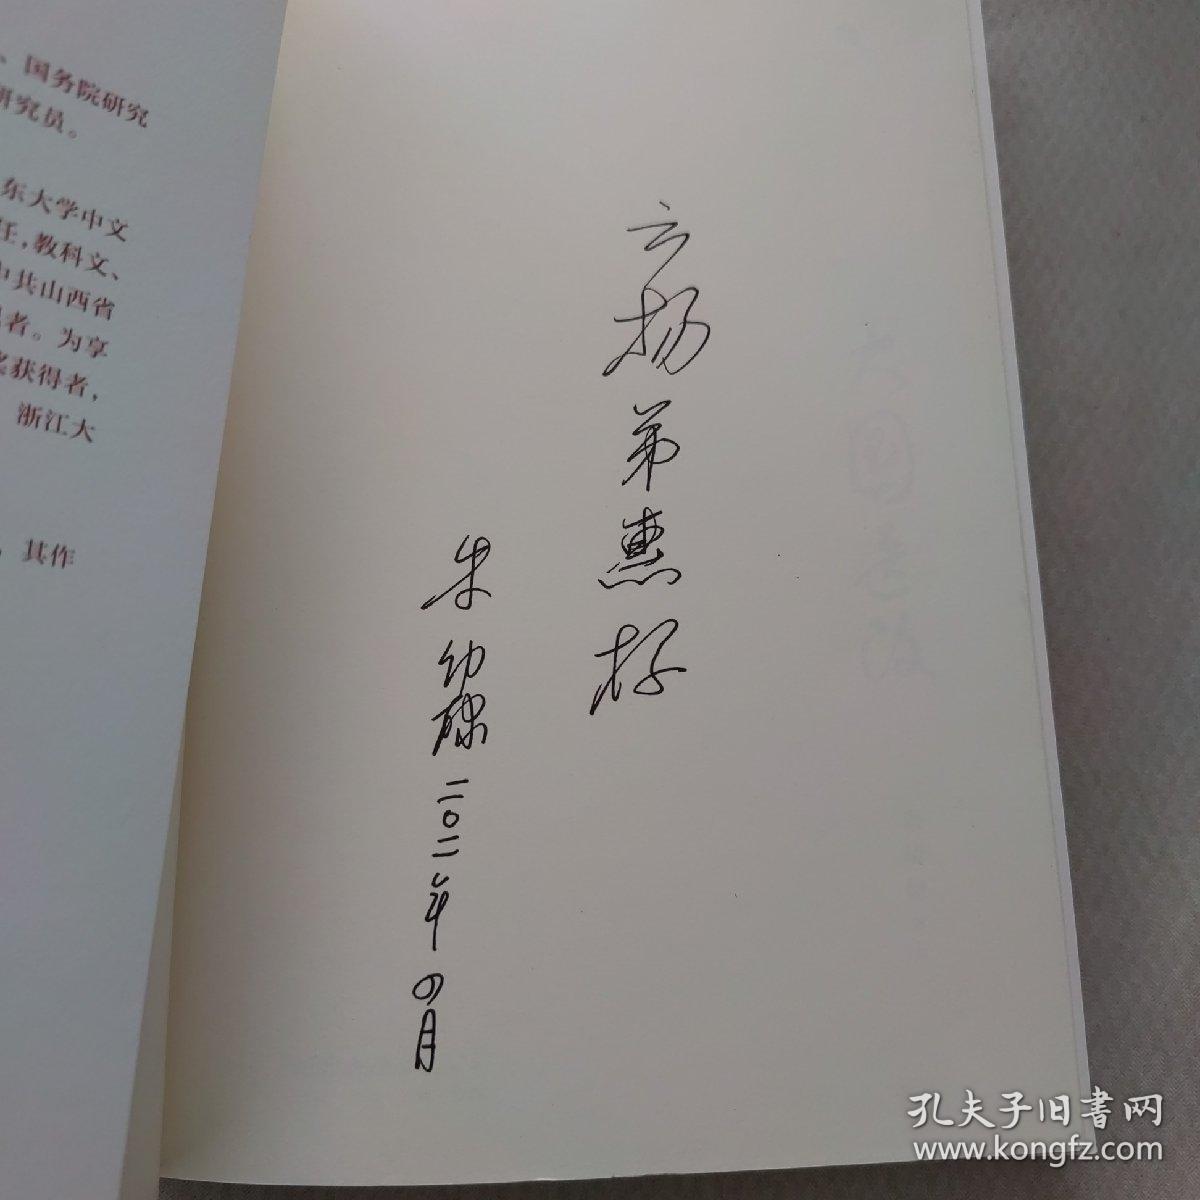 、国务院研究
研究员。
东大学中文
任，教科文、
中共山西省
者。为享
奖获得者，
浙江大
其作
云扬弟惠存
朱幼棣
二〇一二年四月
孔夫子旧书网
www.kongfz.com